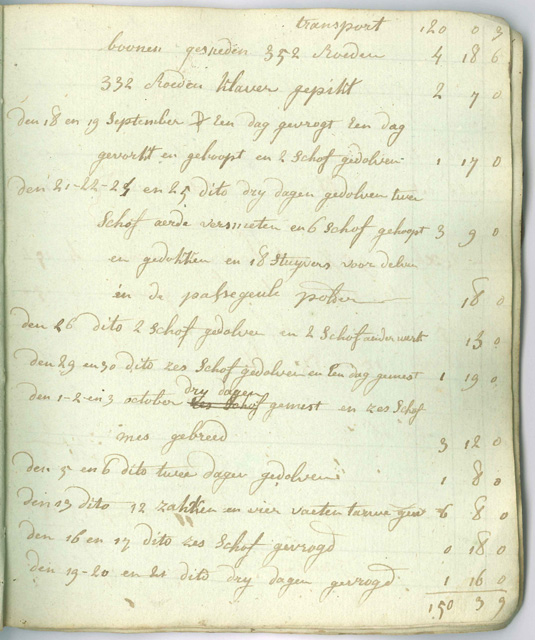 transport 120 0 3
boonen gesneden 352 Roeden 4 18 6
332 Roeden klaver gepikt 2 7 0
den 18 en 19 September Een dag gevrogt Een dag
gevorkt en gehoopt en 2 Schof gedolven 1 17 0
den 21-22-24 en 25 dito dry dagen gedolven twee
Schof aerde versmeten en 6 Schof gehoopt 3 9 0
en gedekken en 18 Stuyvers voor delven
en de 18 0
den 26 dito 2 Schof gedolven en 2 Schof ander werk 13 0
den 29 en 30 dito zes Schof gedolven en Een dag gemest 1 19 0
den 1-2 en 3 october dry dagen gemest en zes Schof
mes gebreed 3 12 0
den 5 en 6 dito twee dagen gedolven 1 8 0
den 13 dito 12 zakken en vier vaeten tarwe 6 8 0
den 16 en 17 dito zes Schof gevrogd 0 18 0
den 19-20 en 21 dito dry dagen gevrogd 1 16 0
150 3 9